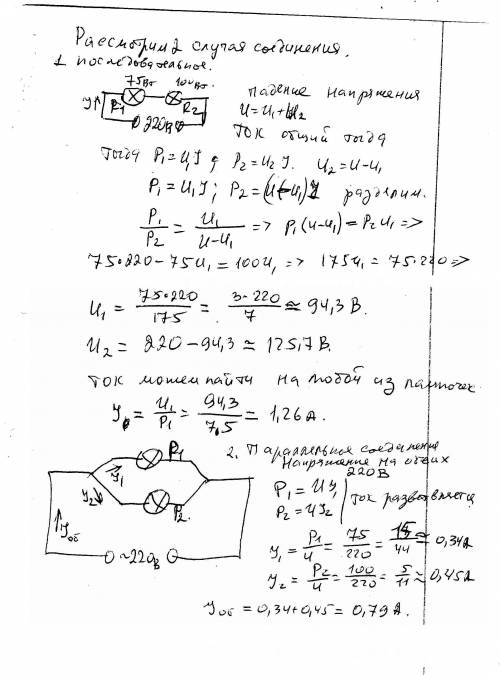 Рассмотрим 2 случая соединения.
1 последовательное.
75Вт 100Вт.
J↑ P1 P2
220В
падение напряжения
U=U1+U2
ток общий тогда
тогда P1=U1J; P2=U2J. U2=U-U1
P1=U1J; P2=(U-U1)J разделим.
P1/P2 = U1/(U-U1) => P1(U-U1)=P2U1 =>
75·220-75U1=100U1 => 175U1=75·220 =>
U1 = 75·220/175 = 3·220/7 ≃ 94,3 В.
U2 = 220-94,3 ≃ 125,7 В.
ток можем найти на любой из лампочек
J = U1/P1 = 94,3/7,5 = 1,26 А.
2. Параллельное соединение
напряжение на обеих
220В
P1
J1
J2
P2
↑Jоб
~220В
P1=UJ1
P2=UJ2
ток разветвляется
J1 = P1/U = 75/220 = 15/44 ≃ 0,34А
J2 = P2/U = 100/220 = 5/11 ≃ 0,45А
Jоб = 0,34+0,45 = 0,79 А.